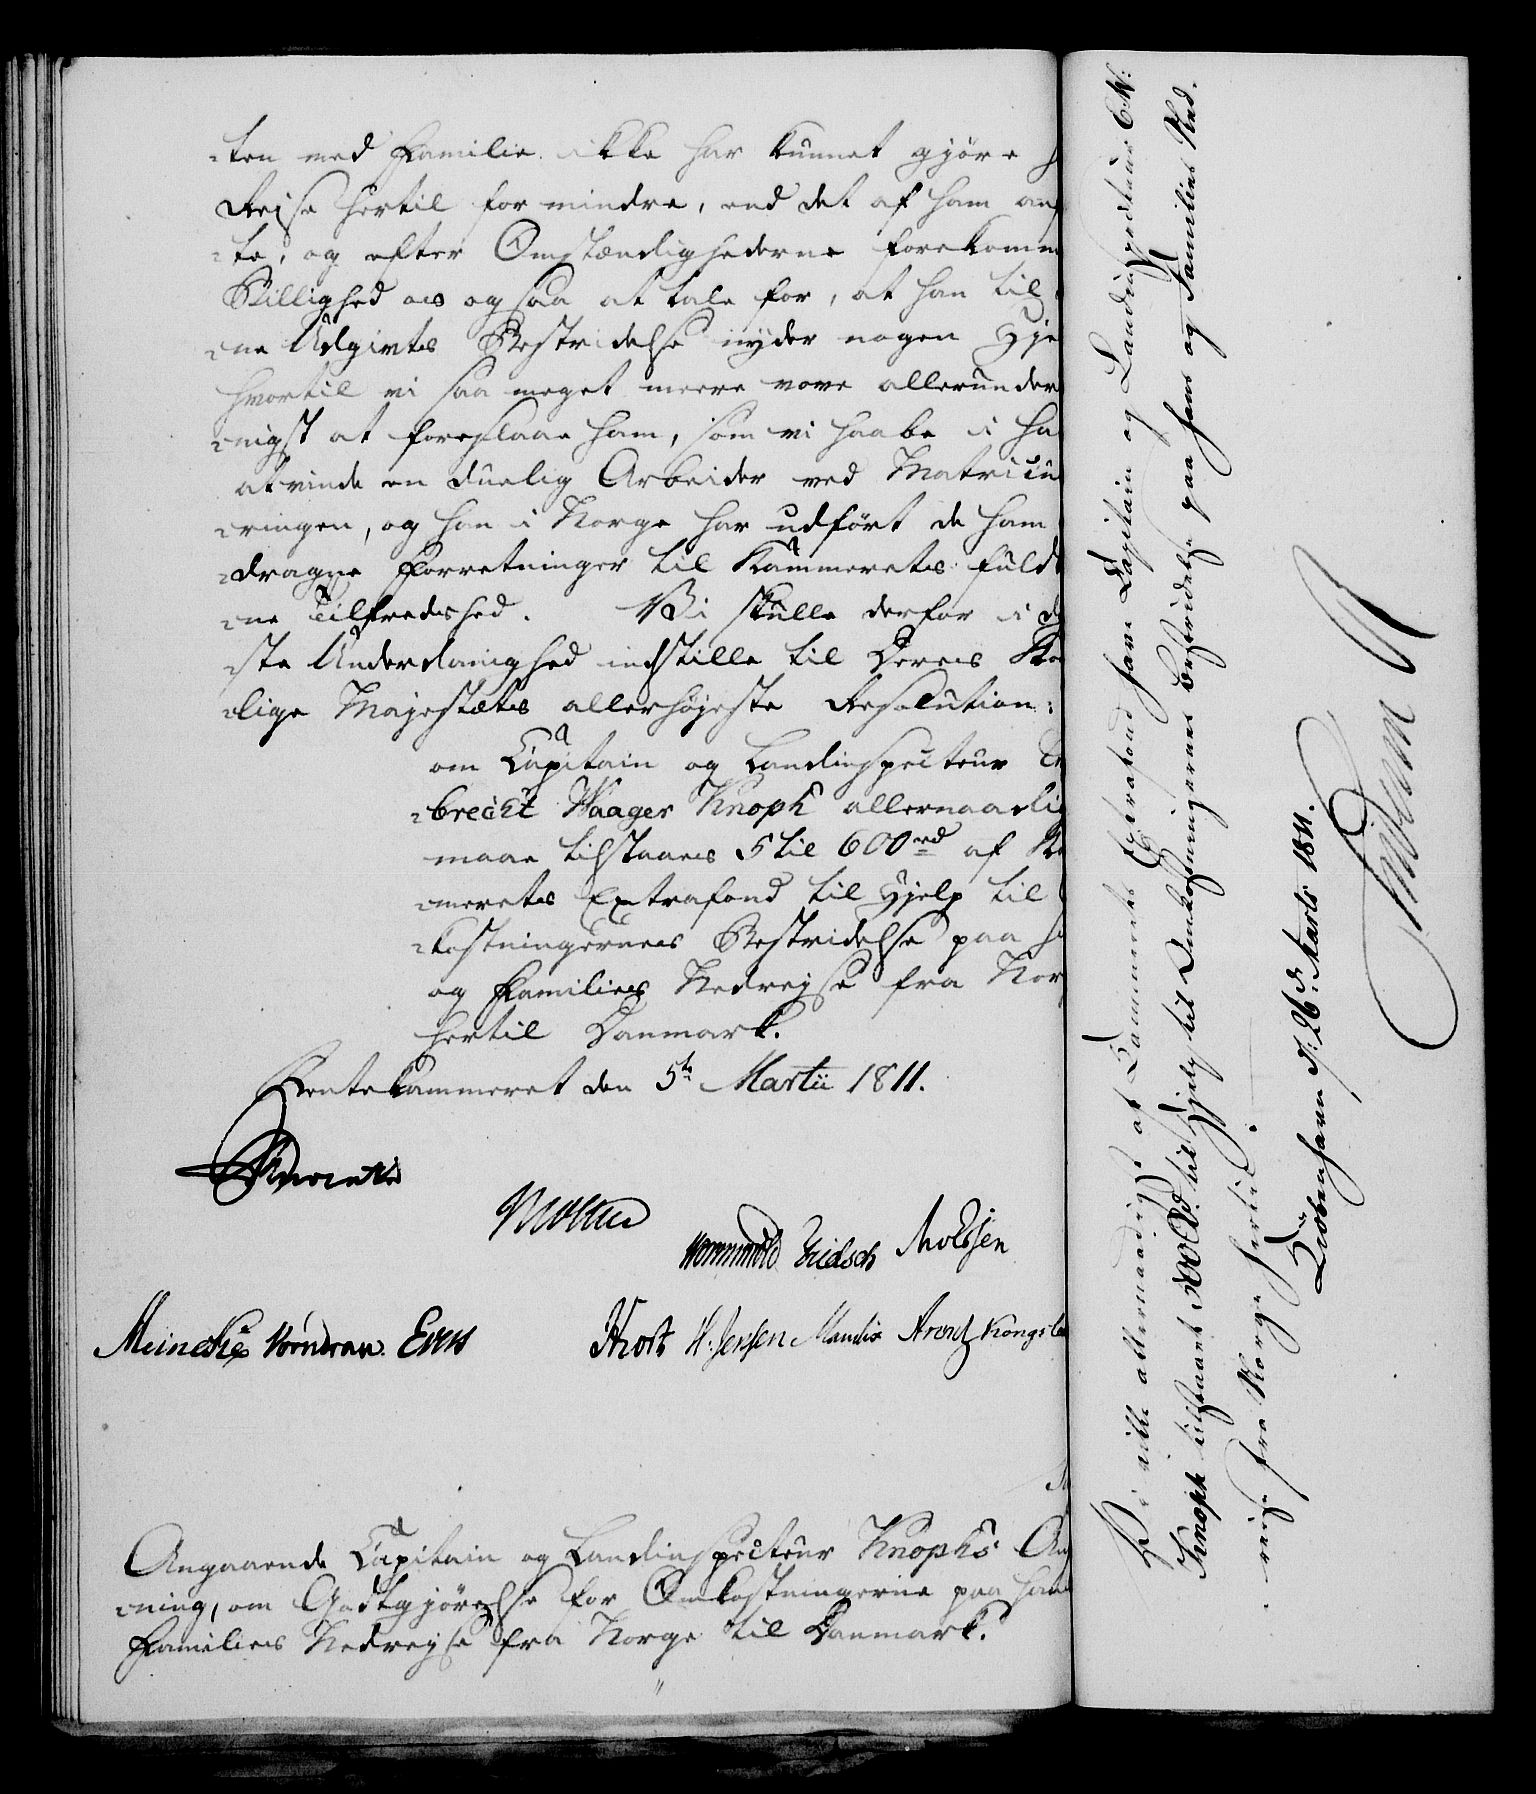 -ten med Familie ikke har kunnet gjöre
Rejse hertil for mindre, end det af ham anf
-te, og efter Omstændighederne forekomm
Billighed os ogsaa at tale for, at han til
-ne Udgivts Bestridelse nyder nogen Hje
hvortil vi saa meget meere vove allerunder
-nigst at foreslaae ham, som vi haabe i ha
at vinde en duelig Arbeider ved Matricu
-ringen, og han i Norge har udført de ham
-dragne Forretninger til Kammerets fuld
-ne Tilfredshed. Vi skulle derfor i d
-ste Underdanighed indstille til Deres Ko
-lige Majestæts allerhøjeste Resolution:
om Capitain og Landinspecteur En
-brecht Waager Knoph allernaadig
maae tilstaaes 5 til 600 rd af Ka
-merets Extrafond til Hjelp til
-kostningernes Bestridelse paa h
og Families Nedrejse fra Nor
hertil Danmark.
Rentekammeret den 5te Martii 1811.
Moltke
Wormskiold Knudsen
Meincke Vörndran. Evers Hort H. Jensen Mandix Arend Kongslev
Angaaende Capitain og Landinspecteur Knophs An
-ning, om Godtgjörelse for Omkostningerne paa han
Families Nedrejse fra Norge til Danmark.
Vi ville allernaadigst af Kammerets Extrafond have Capitain og Landinspecteur E: W:
Knoph tilstaaet 500 Rd. til Hjelp til Omkostningernes Bestridelse paa hans og Families Ned-
-reise fra Norge hertil.
Kiöbenhavn d: 26d Marts 1811.
Frederik R